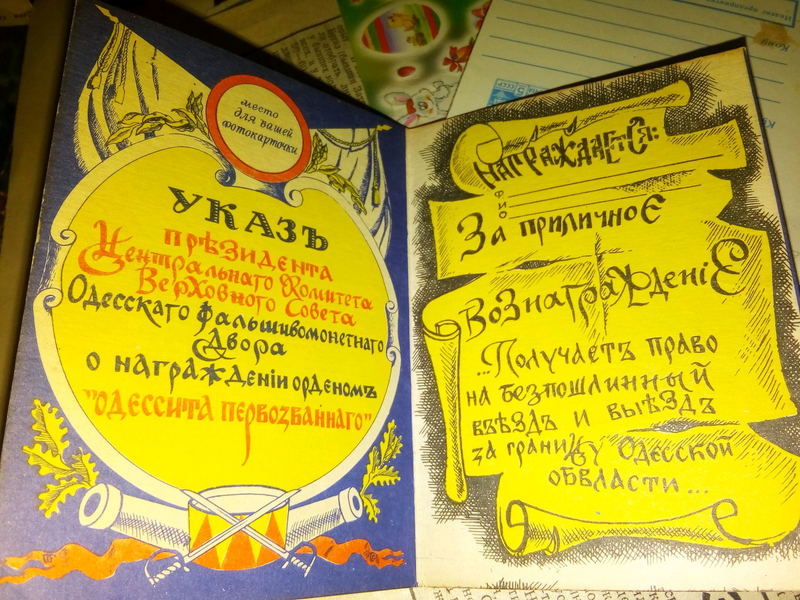 место
для вашей
фотокарточки
УКАЗЪ
прѣзидента
Центральнаго Комитета
Верховного Совета
Одесскаго фальшивомонетнаго
Двора
о награжденіи орденомъ
"Одессита первозваннаго"
Награждается:
ФИО
За приличное
вознагражденіе
...Получаетъ право
на безпошлинный
въѣздъ и выѣздъ
за границу Одесской
обвласти...
Кому